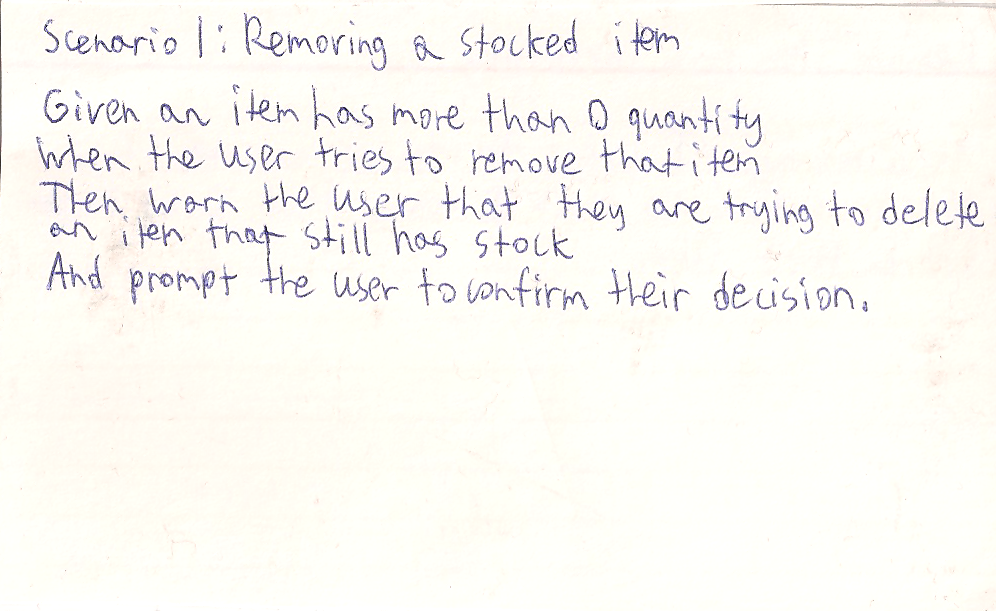 Scenario 1: Removing a stocked item
Given an item has more than 0 quantity
When the user tries to remove that item
Then warn the user that they are trying to delete
an item that still has stock
And prompt the user to confirm their decision.